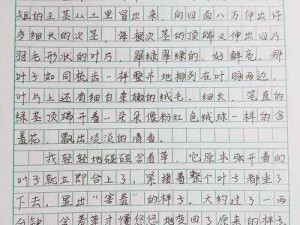 短的主茎从土里冒出来,向四面八方伸出许
多细长的次茎。每根次茎的顶端又伸出四片
羽毛形状的叶片,翠绿翠绿的,好鲜亮。那
叶子如同梳齿一样整齐地排列在叶脉两边,
叶片上还有细白柔嫩的绒毛。细长、笔直的
绿茎顶端开着一朵朵像粉红色绒球一样的含
羞花,飘出淡淡的清香。
我轻轻地碰碰含羞草,它原本张开着的
叶子就立即合上了,紧接着整个叶子都垂了
下去,露出“害羞”的样子。大约过了一两
分钟,含羞草才慢悠悠地变回了原来的样子。